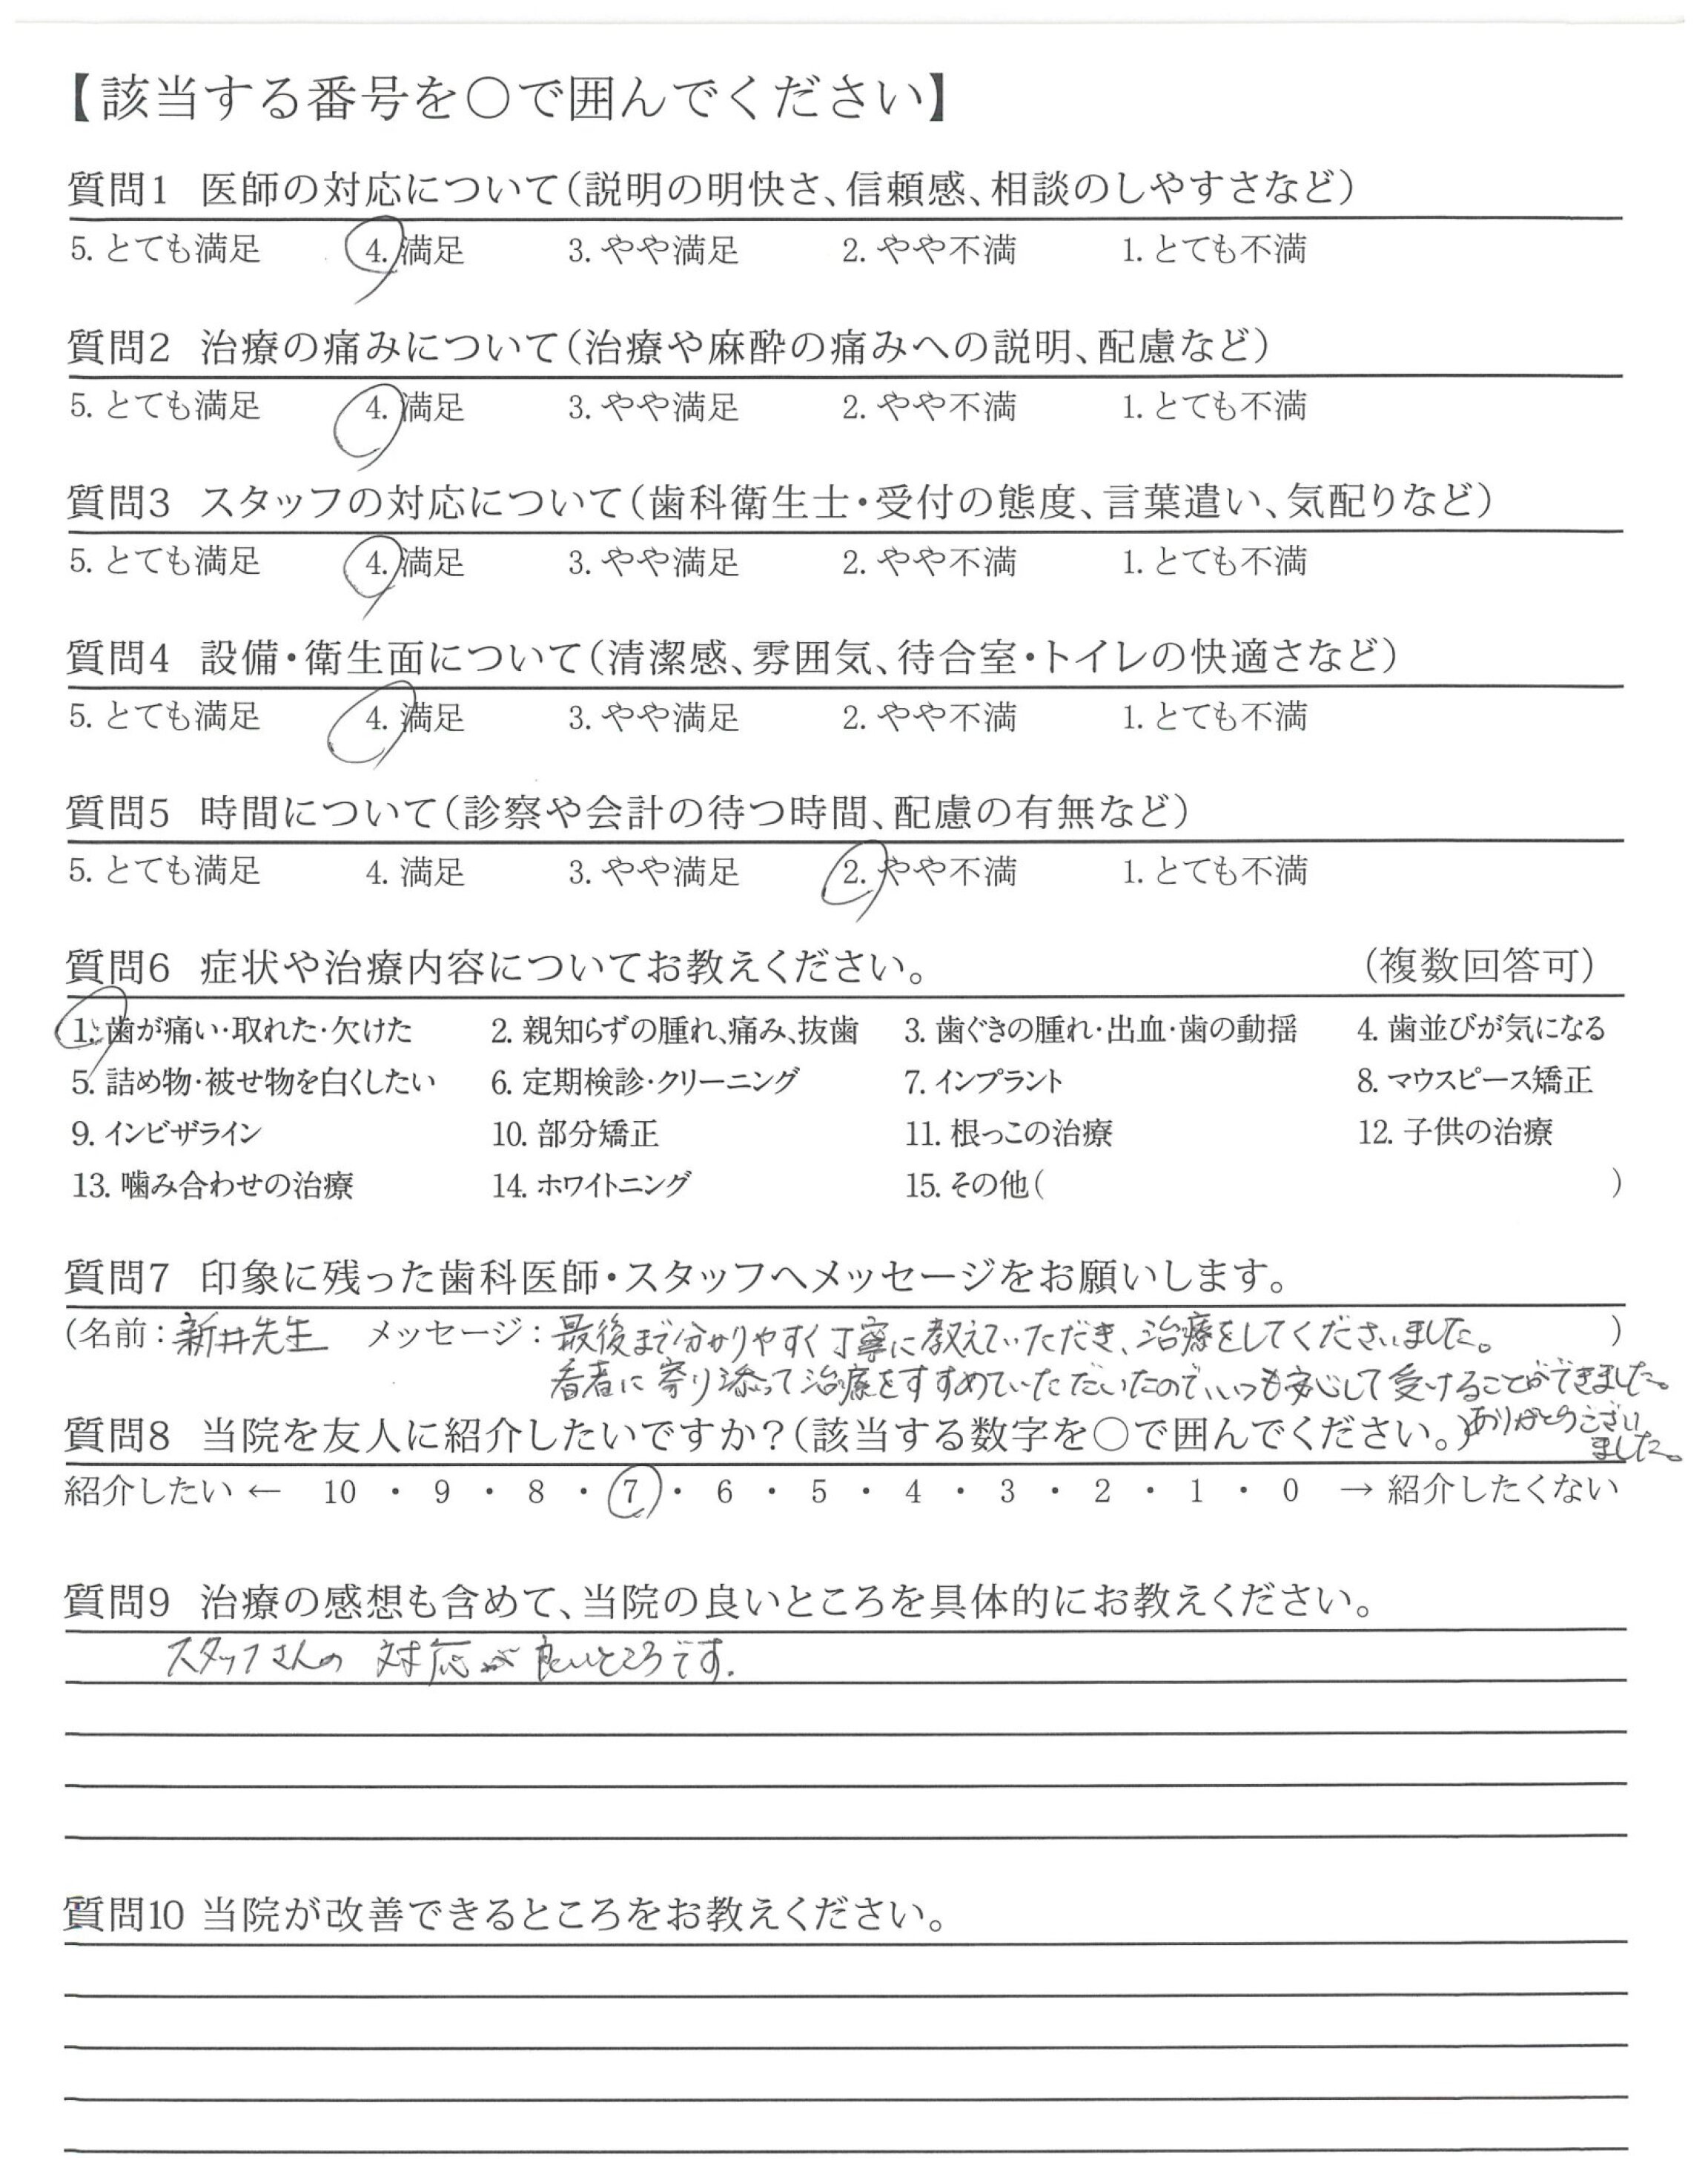 【該当する番号を〇で囲んでください】
質問1 医師の対応について（説明の明快さ、信頼感、相談のしやすさなど）
5. とても満足 4. 満足 3. やや満足 2. やや不満 1. とても不満
質問2 治療の痛みについて（治療や麻酔の痛みへの説明、配慮など）
5. とても満足 4. 満足 3. やや満足 2. やや不満 1. とても不満
質問3 スタッフの対応について（歯科衛生士・受付の態度、言葉遣い、気配りなど）
5. とても満足 4. 満足 3. やや満足 2. やや不満 1. とても不満
質問4 設備・衛生面について（清潔感、雰囲気、待合室・トイレの快適さなど）
5. とても満足 4. 満足 3. やや満足 2. やや不満 1. とても不満
質問5 時間について（診察や会計の待つ時間、配慮の有無など）
5. とても満足 4. 満足 3. やや満足 2. やや不満 1. とても不満
質問6 症状や治療内容についてお教えください。 （複数回答可）
1. 歯が痛い・取れた・欠けた 2. 親知らずの腫れ、痛み、抜歯 3. 歯ぐきの腫れ・出血・歯の動揺 4. 歯並びが気になる
5. 詰め物・被せ物を白くしたい 6. 定期検診・クリーニング 7. インプラント 8. マウスピース矯正
9. インビザライン 10. 部分矯正 11. 根っこの治療 12. 子供の治療
13. 噛み合わせの治療 14. ホワイトニング 15. その他（ ）
質問7 印象に残った歯科医師・スタッフへメッセージをお願いします。
（名前：新井先生 メッセージ：最後まで分かりやすく丁寧に教えていただき、治療をしてくださいました。 ）
看者に寄り添って治療をすすめていただいたので、いつも安心して受けることができました。
ありがとうござい
ました。
質問8 当院を友人に紹介したいですか？（該当する数字を〇で囲んでください。）
紹介したい ← 10 ・ 9 ・ 8 ・ 7 ・ 6 ・ 5 ・ 4 ・ 3 ・ 2 ・ 1 ・ 0 → 紹介したくない
質問9 治療の感想も含めて、当院の良いところを具体的にお教えください。
スタッフさんの対応が良いところです.
質問10 当院が改善できるところをお教えください。